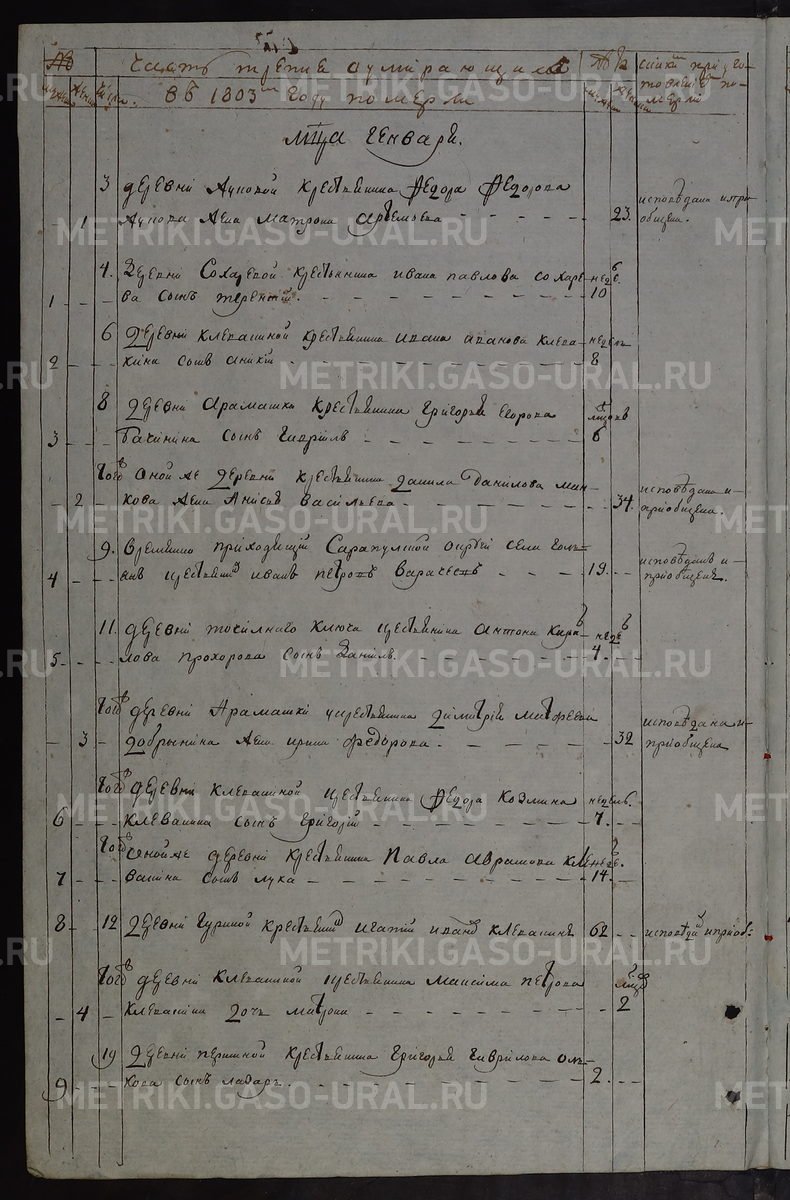 Часть третие о умiрающихъ
въ 1803мъ Году померли
Мца Генваря.
3 деревни Ауновой Крестьянина Федора Федорова
1 Аунова жена Матрона Артемьева 23. исповѣдана и прiобщена.
4. Деревни Сохаревой крестьянина Ивана Павлова Сохаре-
1 ва сынъ Терентiй. недѣ. 10
6 Деревни Клевакиной крестьянина Ивана Иванова Клева-
2 кина сынъ Аникiй недель 8
8 Деревни Арамашки Крестьянина Григорья Егорова
3 Бачинина сынъ Гаврiилъ мцовъ 6
Тогожъ Оной же Деревни крестьянина Данила Данилова Мин-
2 кова жена Анисья Васильева 34. исповѣдана и прiобщена.
9. Временно приходящiй Сарапулской округи села
4 крестьянинъ Иванъ Петровъ 19. исповѣданъ и прiобщенъ.
11. деревни Точилнаго Ключа крестьянина Антона Кирил-
5 лова Прохорова сынъ Данiилъ. недѣ 4
Тогожъ деревни Арамашки крестьянина Димитрiя Матфеева
3 Добрынина жена Ирина Федорова. 32 исповѣдана и прiобщена
Тогожъ деревни Клевакиной крестьянина Федора Козмина
6 Клевакина сынъ Григорiй недель. 7.
Тогожъ Оной же деревни крестьянина Павла Аврамова Кле-
7 вакина сынъ Лука недѣ. 14.
8 12 Деревни Гуриной крестьянинъ Игатiй Ивановъ Клевакинъ 62 исповѣдан и прiоб:
Тогожъ деревни Клевакиной крестьянина Максима Петрова
4 Клевакина дочь Матрона мцовъ 2
19 Деревни Першиной крестьянина Григорья Гаврилова
9 кова сынъ Лазарь. 2.
METRIKI.GASO-URAL.RU